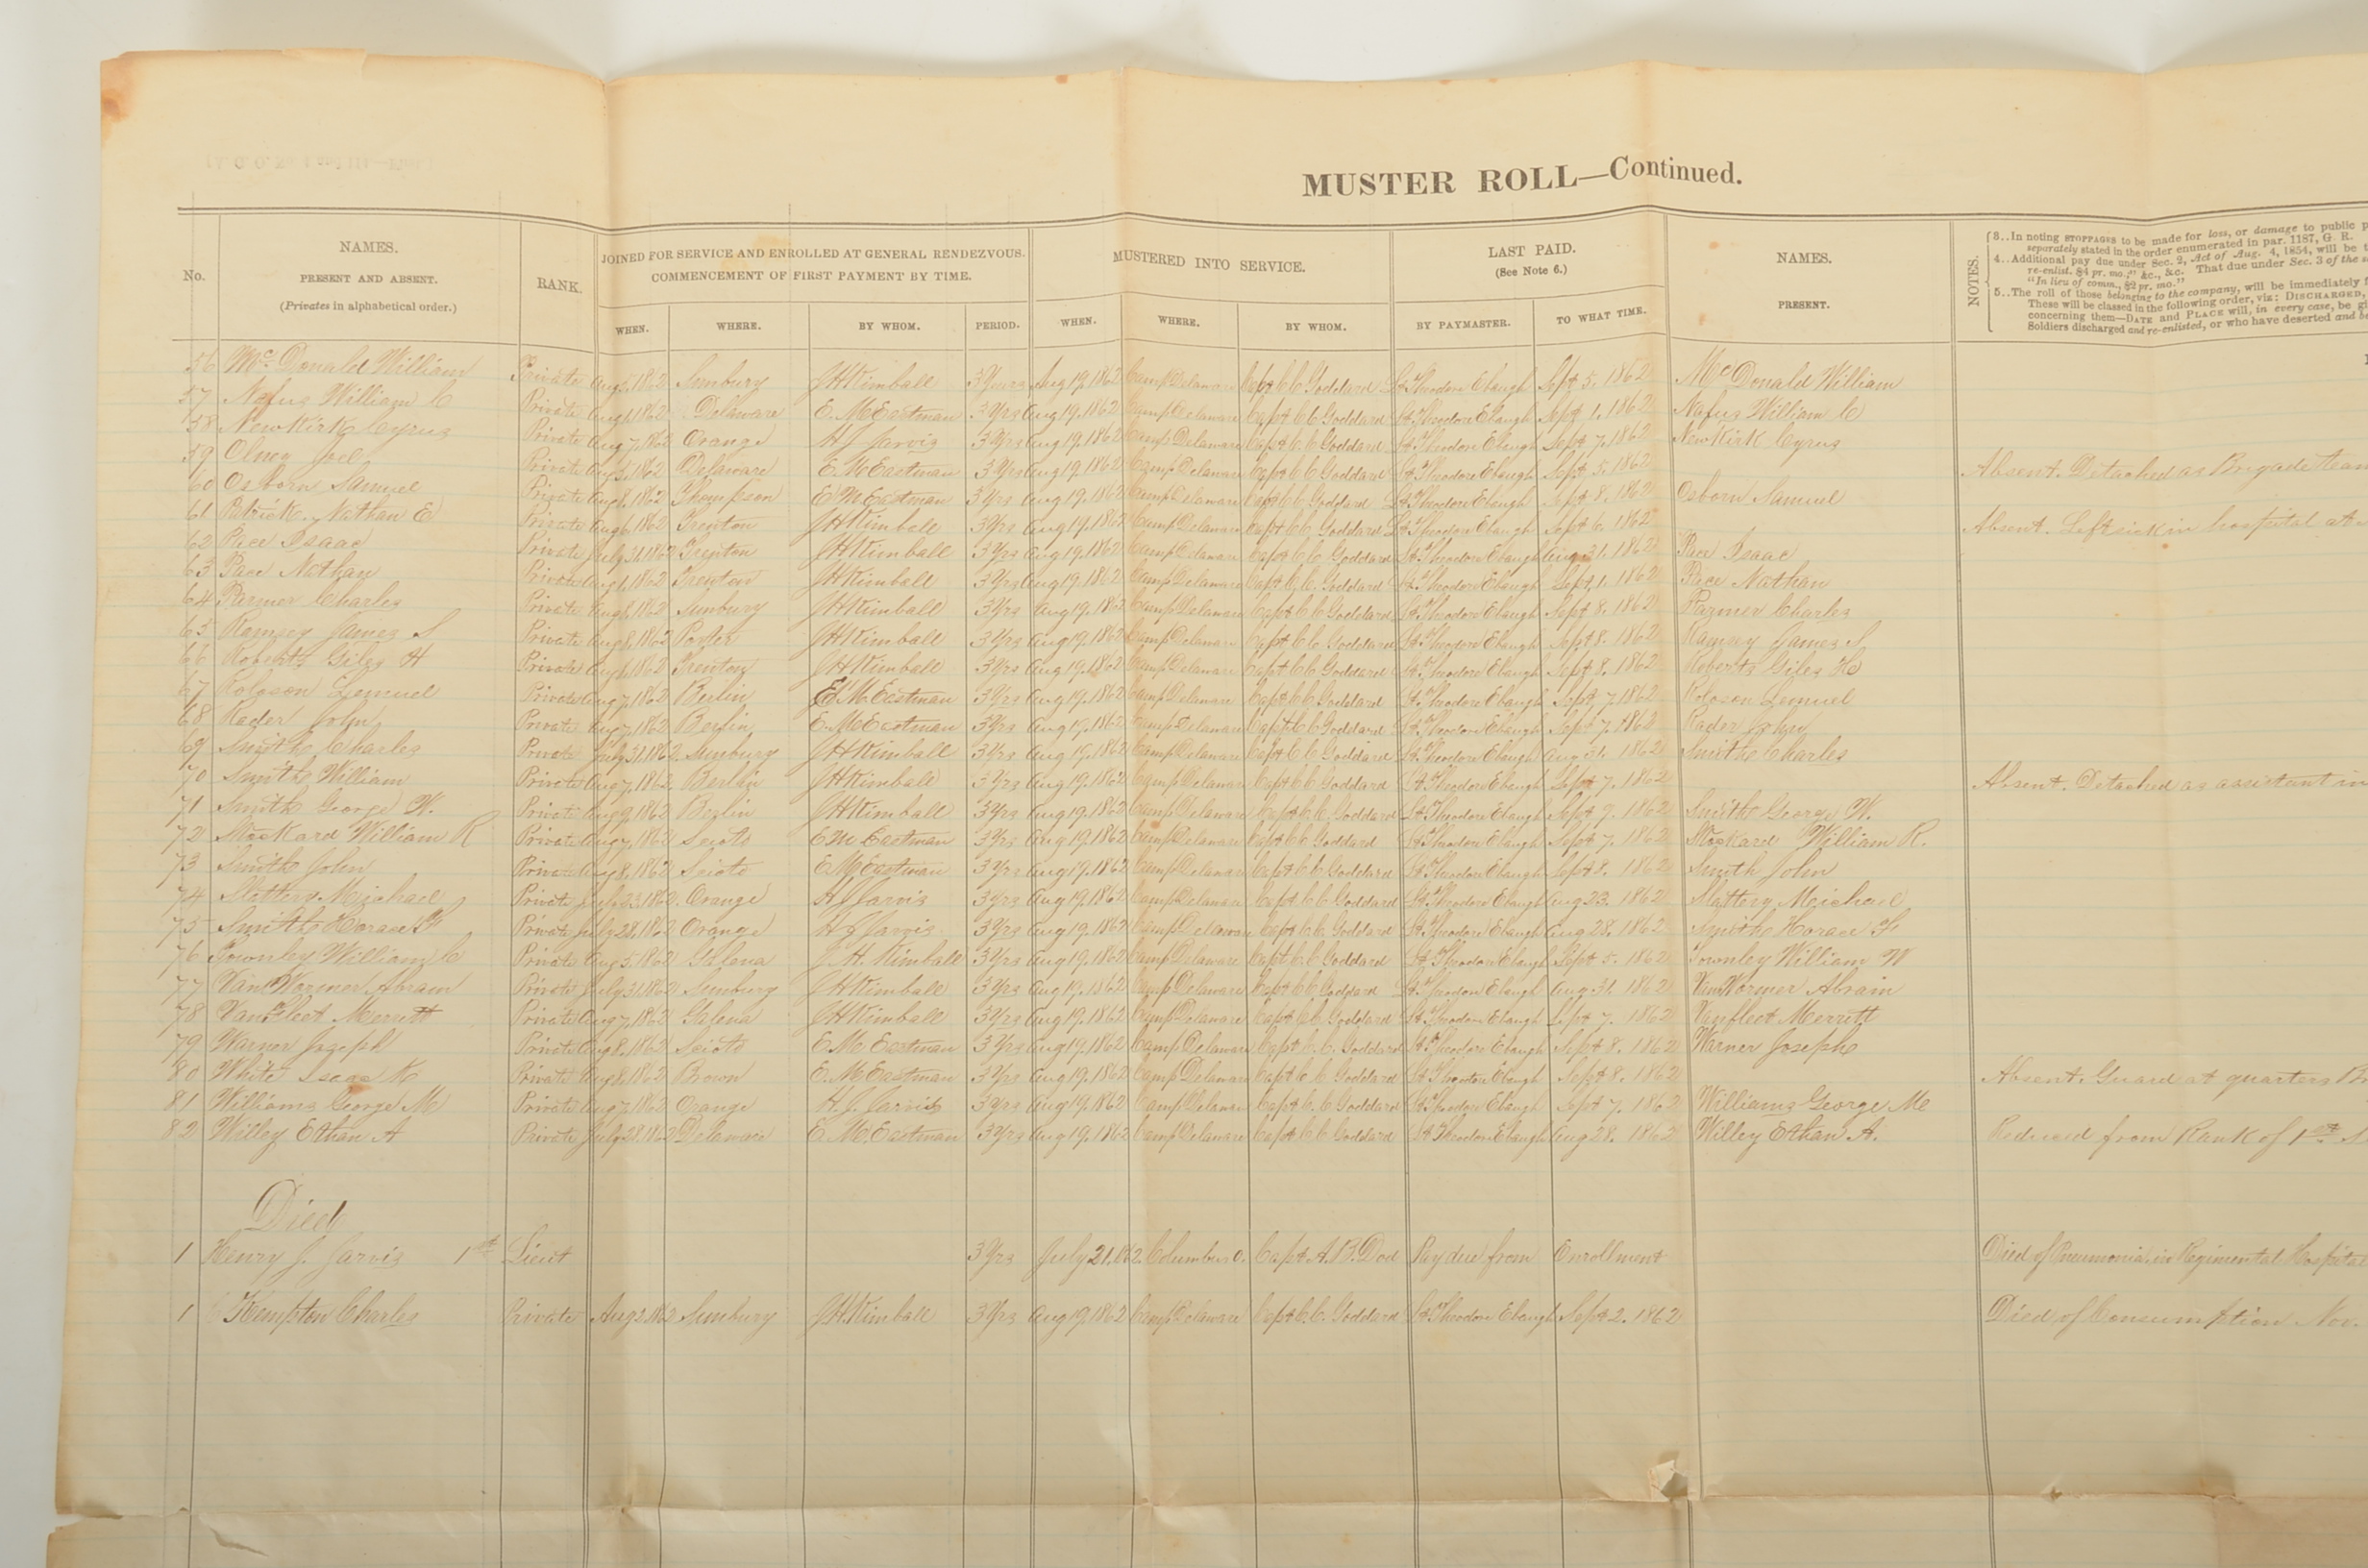 MUSTER ROLL—Continued.
No. NAMES. PRESENT AND ABSENT. (Privates in alphabetical order.) RANK. JOINED FOR SERVICE AND ENROLLED AT GENERAL RENDEZVOUS. COMMENCEMENT OF FIRST PAYMENT BY TIME. MUSTERED INTO SERVICE. LAST PAID. (See Note 6.) NAMES. PRESENT.
WHEN. WHERE. BY WHOM. PERIOD. WHEN. WHERE. BY WHOM. BY PAYMASTER. TO WHAT TIME.
NOTES.
3..In noting STOPPAGES to be made for loss, or damage to public
separately stated in the order enumerated in par. 1187, G R.
4..Additional pay due under Sec. 2, Act of Aug. 4, 1854, will be
re-enlist. $4 pr. mo.;" &c., &c. That due under Sec. 3 of the
"In lieu of comm., $2 pr. mo."
5..The roll of those belonging to the company, will be immediately
These will be classed in the following order, viz: DISCHARGED,
concerning them—DATE and PLACE will, in every case, be
Soldiers discharged and re-enlisted, or who have deserted and
56 McDonald William Private Aug 5, 1862 Sunbury JH Kimball 3 Years Aug 19, 1862 Camp Delaware Capt C C Goddard Lt Theodore Ebaugh Sept 5. 1862 McDonald William
57 Nafus William C Private Aug 1, 1862 Delaware E. M Eastman 3 Yrs Aug 19, 1862 Camp Delaware Capt C C Goddard Lt Theodore Ebaugh Sept 1. 1862 Nafus William C
58 NewKirk Cyrus Private Aug 7, 1862 Orange H J Jarvis 3 Yrs Aug 19, 1862 Camp Delaware Capt C. C. Goddard Lt Theodore Ebaugh Sept 7. 1862 NewKirk Cyrus
59 Olney Joel Private Aug 5, 1862 Delaware E. M Eastman 3 Yrs Aug 19, 1862 Camp Delaware Capt C C Goddard Lt Theodore Ebaugh Sept 5. 1862 Absent. Detached as Brigade
60 Osborn Samuel Private Aug 8, 1862 Thompson E M Eastman 3 Yrs Aug 19. 1862 Camp Delaware Capt C C Goddard Lt Theodore Ebaugh Sept 8. 1862 Osborn Samuel
61 Patrick Nathan E Private Aug 6, 1862 Trenton JH Kimball 3 Yrs Aug 19. 1862 Camp Delaware Capt C C Goddard Lt Theodore Ebaugh Sept 6. 1862 Absent. Left sick in hospital at
62 Pace Isaac Private July 31, 1862 Trenton JH Kimball 3 Yrs Aug 19. 1862 Camp Delaware Capt C C Goddard Lt Theodore Ebaugh Aug 31. 1862 Pace Isaac
63 Pace Nathan Private Aug 1, 1862 Trenton JH Kimball 3 Yrs Aug 19, 1862 Camp Delaware Capt C. C. Goddard Lt Theodore Ebaugh Sept 1. 1862 Pace Nathan
64 Parmer Charles Private Aug 8, 1862 Sunbury JH Kimball 3 Yrs Aug 19. 1862 Camp Delaware Capt C C Goddard Lt Theodore Ebaugh Sept 8. 1862 Parmer Charles
65 Ramsey James S Private Aug 8, 1862 Porter JH Kimball 3 Yrs Aug 19. 1862 Camp Delaware Capt C C Goddard Lt Theodore Ebaugh Sept 8. 1862 Ramsey James S
66 Roberts Giles H Private 1862 Trenton JH Kimball 3 Yrs Aug 19. 1862 Camp Delaware Capt C C Goddard Lt Theodore Ebaugh Sept 8. 1862 Roberts Giles H
67 Roloson Lemuel Private Aug 7, 1862 Berlin E. M. Eastman 3 Yrs Aug 19. 1862 Camp Delaware Capt C C Goddard Lt Theodore Ebaugh Sept 7. 1862 Roloson Lemuel
68 Rader John Private Aug 7, 1862 Berlin E. M Eastman 3 Yrs Aug 19. 1862 Camp Delaware Capt C C Goddard Lt Theodore Ebaugh Sept 7. 1862 Rader John
69 Smith Charles Private July 31, 1862 Sunbury JH Kimball 3 Yrs Aug 19. 1862 Camp Delaware Capt C C Goddard Lt Theodore Ebaugh Aug 31. 1862 Smith Charles
70 Smith William Private Aug 7, 1862 Berlin JH Kimball 3 Yrs Aug 19. 1862 Camp Delaware Capt C C Goddard Lt Theodore Ebaugh Sept 7. 1862 Absent. Detached as assistant in
71 Smith George W. Private Aug 9, 1862 Berlin JH Kimball 3 Yrs Aug 19. 1862 Camp Delaware Capt C C Goddard Lt Theodore Ebaugh Sept 9. 1862 Smith George W.
72 Stockard William R Private Aug 7, 1862 Scioto E M Eastman 3 Yrs Aug 19 1862 Camp Delaware Capt C C Goddard Lt Theodore Ebaugh Sept 7. 1862 Stockard William R.
73 Smith John Private Aug 8, 1862 Scioto E M Eastman 3 Yrs Aug 19. 1862 Camp Delaware Capt C C Goddard Lt Theodore Ebaugh Sept 8. 1862 Smith John
74 Slattery Michael Private July 23, 1862 Orange H J Jarvis 3 Yrs Aug 19 1862 Camp Delaware Capt C C Goddard Lt Theodore Ebaugh Aug 23. 1862 Slattery Meichael
75 Smith Horace F Private July 28, 1862 Orange H J Jarvis 3 Yrs Aug 19 1862 Camp Delaware Capt C C Goddard Lt Theodore Ebaugh Aug 28. 1862 Smith Horace F
76 Townley William C Private Aug 5, 1862 Galena J. H. Kimball 3 Yrs Aug 19. 1862 Camp Delaware Capt C C Goddard Lt Theodore Ebaugh Sept 5. 1862 Townley William W
77 VanWormer Abram Private July 31, 1862 Sunbury JH Kimball 3 Yrs Aug 19, 1862 Camp Delaware Capt C C Goddard Lt Theodore Ebaugh Aug 31. 1862 VanWormer Abram
78 VanFleet Merritt Private Aug 7, 1862 Galena JH Kimball 3 Yrs Aug 19. 1862 Camp Delaware Capt C C Goddard Lt Theodore Ebaugh Sept 7. 1862 Vanfleet Merritt
79 Warner Joseph Private Aug 8, 1862 Scioto E. M Eastman 3 Yrs Aug 19. 1862 Camp Delaware Capt C. C. Goddard Lt Theodore Ebaugh Sept 8. 1862 Warner Joseph
80 White Isaac K Private Aug 8, 1862 Brown E. M Eastman 3 Yrs Aug 19. 1862 Camp Delaware Capt C C Goddard Lt Theodore Ebaugh Sept 8. 1862 Absent. Guard at quarters
81 Williams George M Private Aug 7, 1862 Orange H. J. Jarvis 3 Yrs Aug 19. 1862 Camp Delaware Capt C. C Goddard Lt Theodore Ebaugh Sept 7. 1862 Williams George M
82 Willey Ethan A Private July 28, 1862 Delaware E. M. Eastman 3 Yrs Aug 19, 1862 Camp Delaware Capt C C Goddard Lt Theodore Ebaugh Aug 28. 1862 Willey Ethan A. Reduced from Rank of 1st
Died
1 Henry J. Jarvis 1st Lieut 3 Yrs July 21, 1862. Columbus O. Capt A. B. Dod Pay due from Enrollment Died of Pneumonia, in Regimental Hospital
1 Kempton Charles Private Aug 2, 1862 Sunbury JH. Kimball 3 Yrs Aug 19, 1862 Camp Delaware Capt C. C. Goddard Lt Theodore Ebaugh Sept 2. 1862 Died of Consumption Nov.